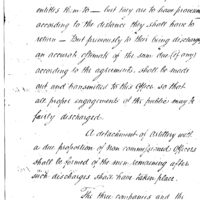 entitles them to — but they are to have provision
according to the distance they shall have to
return — But previously to their being discharged
an accurate estimate of the sum due (if any)
according to the agreements, shall be made
out and transmitted to this Office so that
all proper engagements of the public may be
fairly discharged.
A detachment of Artillery with
a due proportion of Non commissioned Officers
shall be formed of the men remaining after
such discharges shall have taken place.
The three companies and the